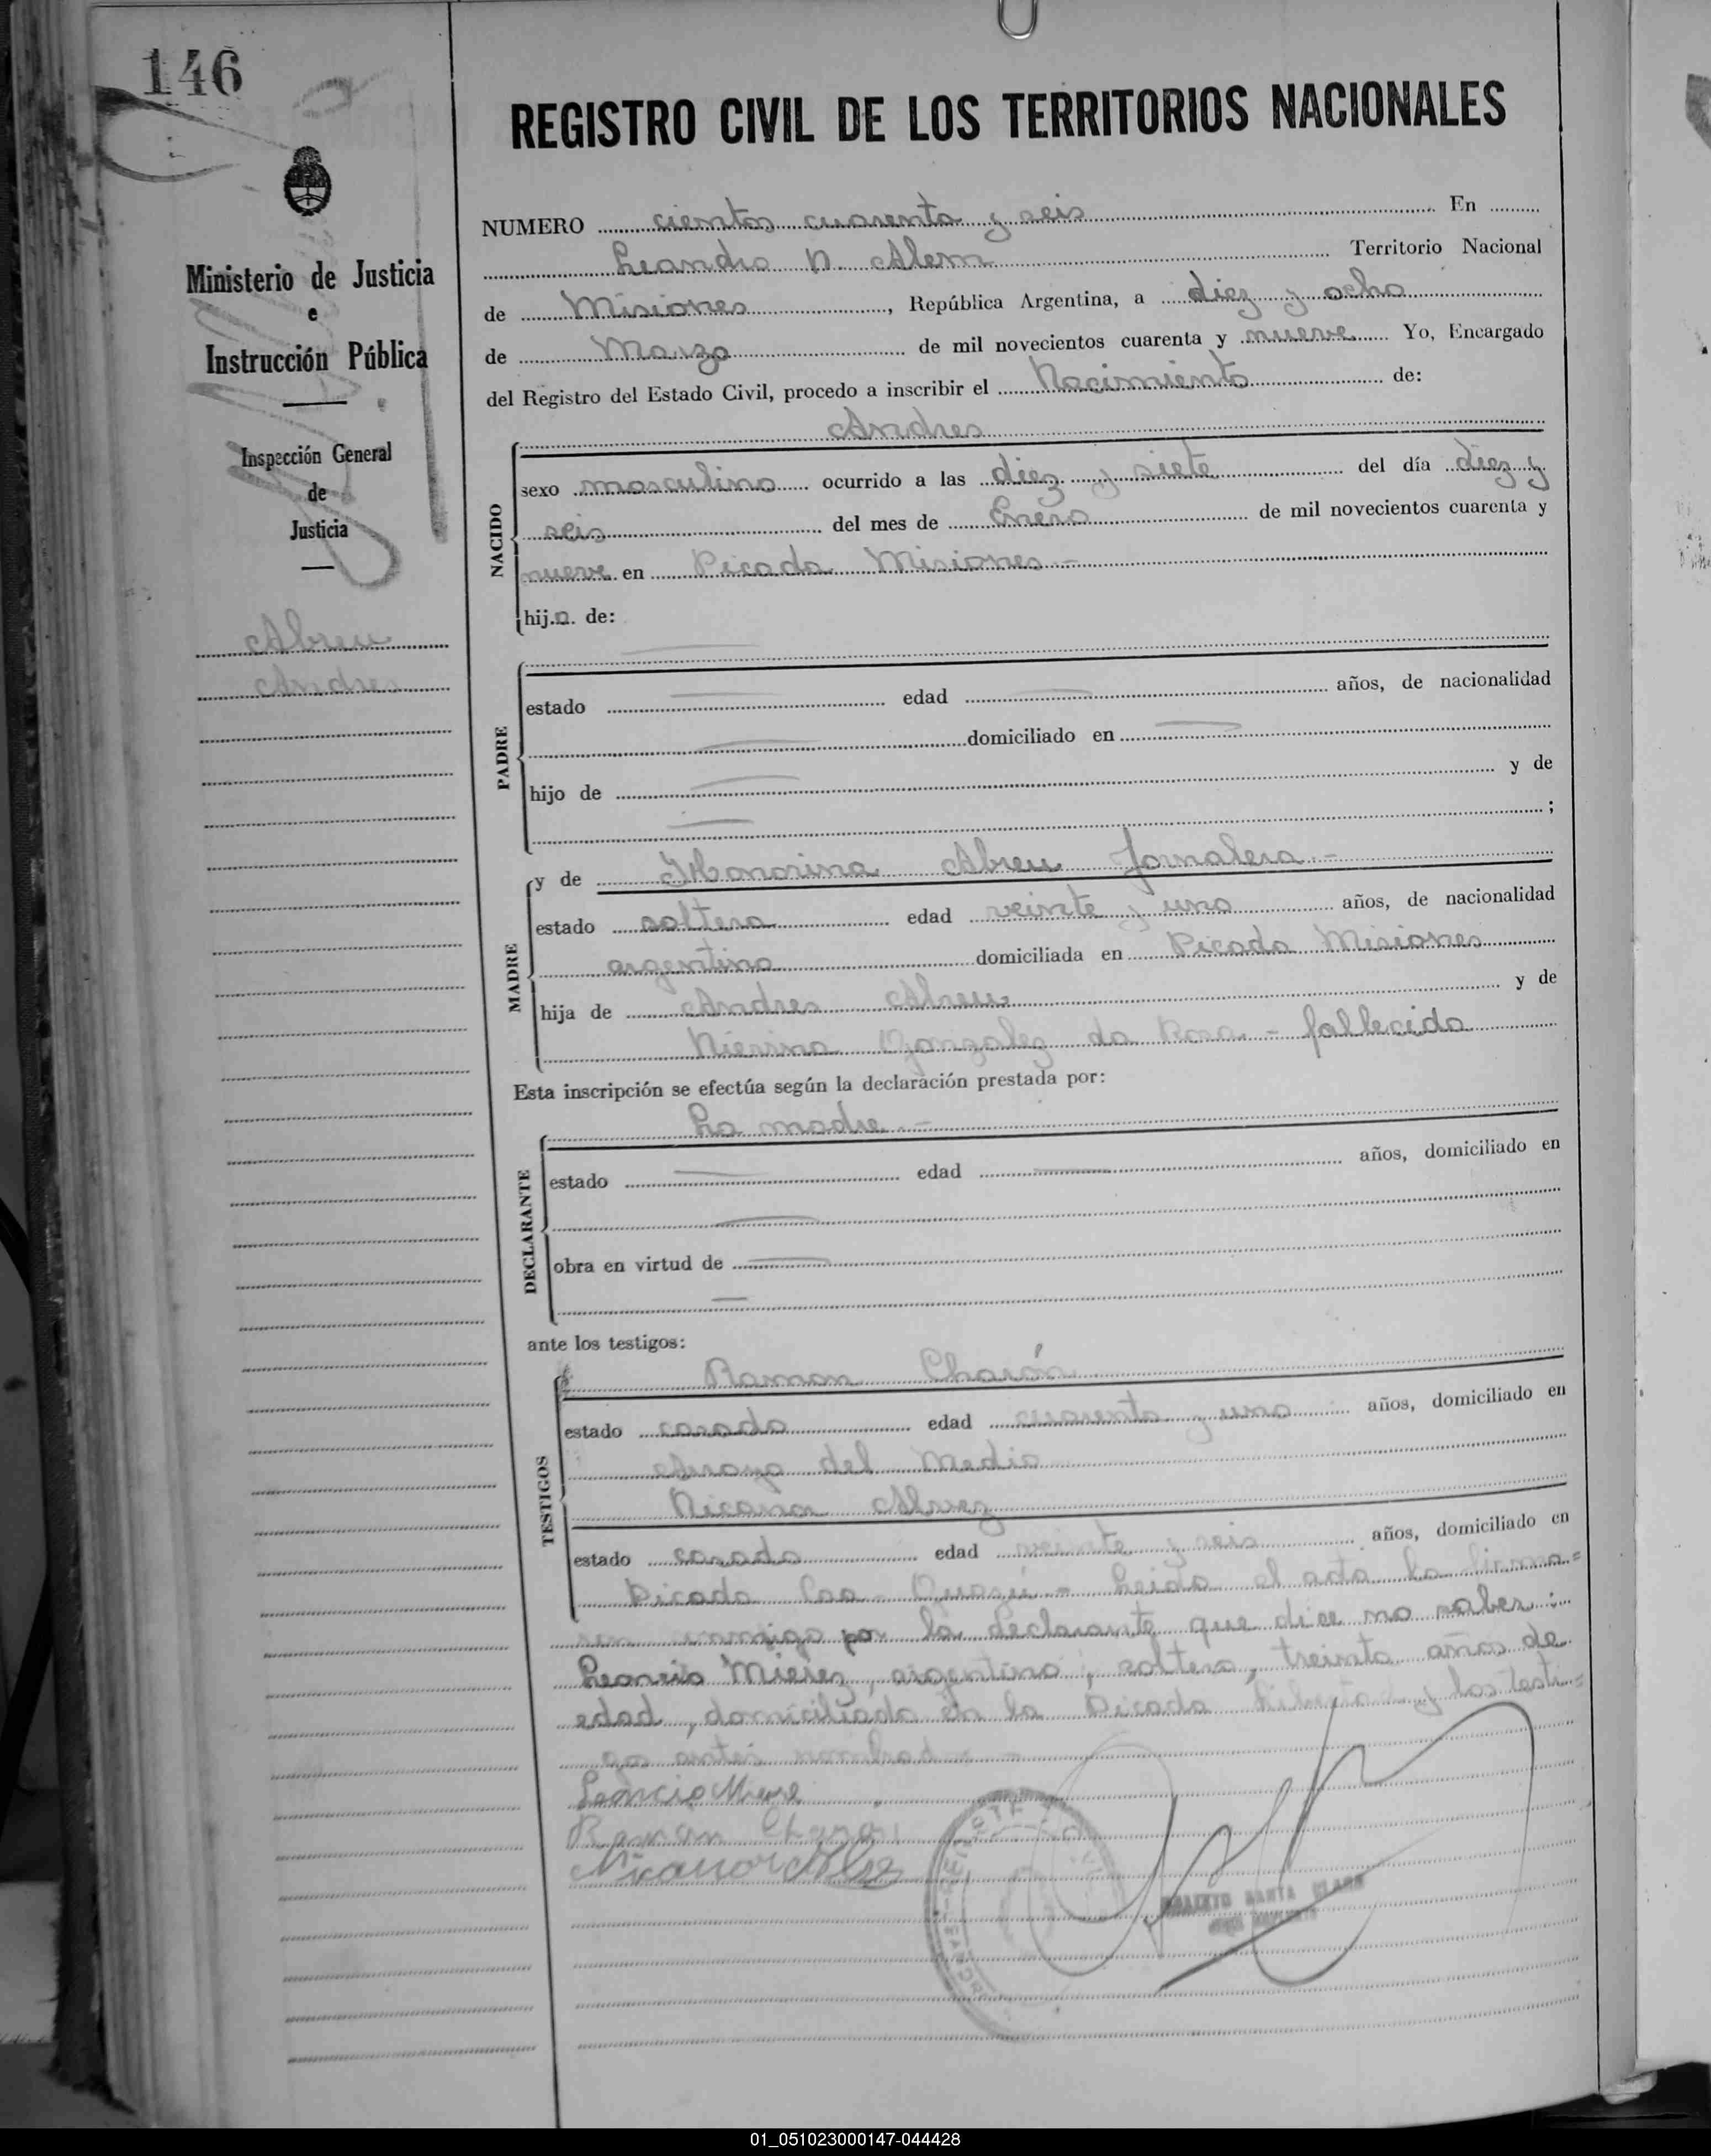 146
REGISTRO CIVIL DE LOS TERRITORIOS NACIONALES
Ministerio de Justicia
e
Instrucción Pública
Inspección General
de
Justicia
Abreu
Andres
NUMERO cientos cuarenta y seis En
Leandro N. Alem Territorio Nacional
de Misiones, República Argentina, a diez y ocho
de Marzo de mil novecientos cuarenta y nueve Yo, Encargado
del Registro del Estado Civil, procedo a inscribir el Nacimiento de:
Andres
NACIDO
sexo masculino ocurrido a las diez y siete del día diez y
seis del mes de Enero de mil novecientos cuarenta y
nueve en Picada Misiones -
hijo de:
PADRE
estado edad años, de nacionalidad
domiciliado en
hijo de y de
;
MADRE
y de Honorina Abreu Jornalera -
estado soltera edad veinte y uno años, de nacionalidad
argentina domiciliada en Picada Misiones
hija de Andres Abreu y de
Gonzalez da Rosa - fallecida
Esta inscripción se efectúa según la declaración prestada por:
La madre -
DECLARANTE
estado edad años, domiciliado en
obra en virtud de
ante los testigos:
TESTIGOS
Ramon Charón
estado casado edad cuarenta y uno años, domiciliado en
Arroyo del Medio
Nicanor Alvez
estado casado edad veinte y seis años, domiciliado en
Picada Caa - Guazú - Leida el acta la firma=
por la declarante que dice no saber:
Leoncio Mierez, argentino, soltero, treinta años de
edad, domiciliado en la Picada y los testi=
gos antes
Leoncio Miere
Ramón
Nicanor
SANTA CLARA
01_051023000147-044428